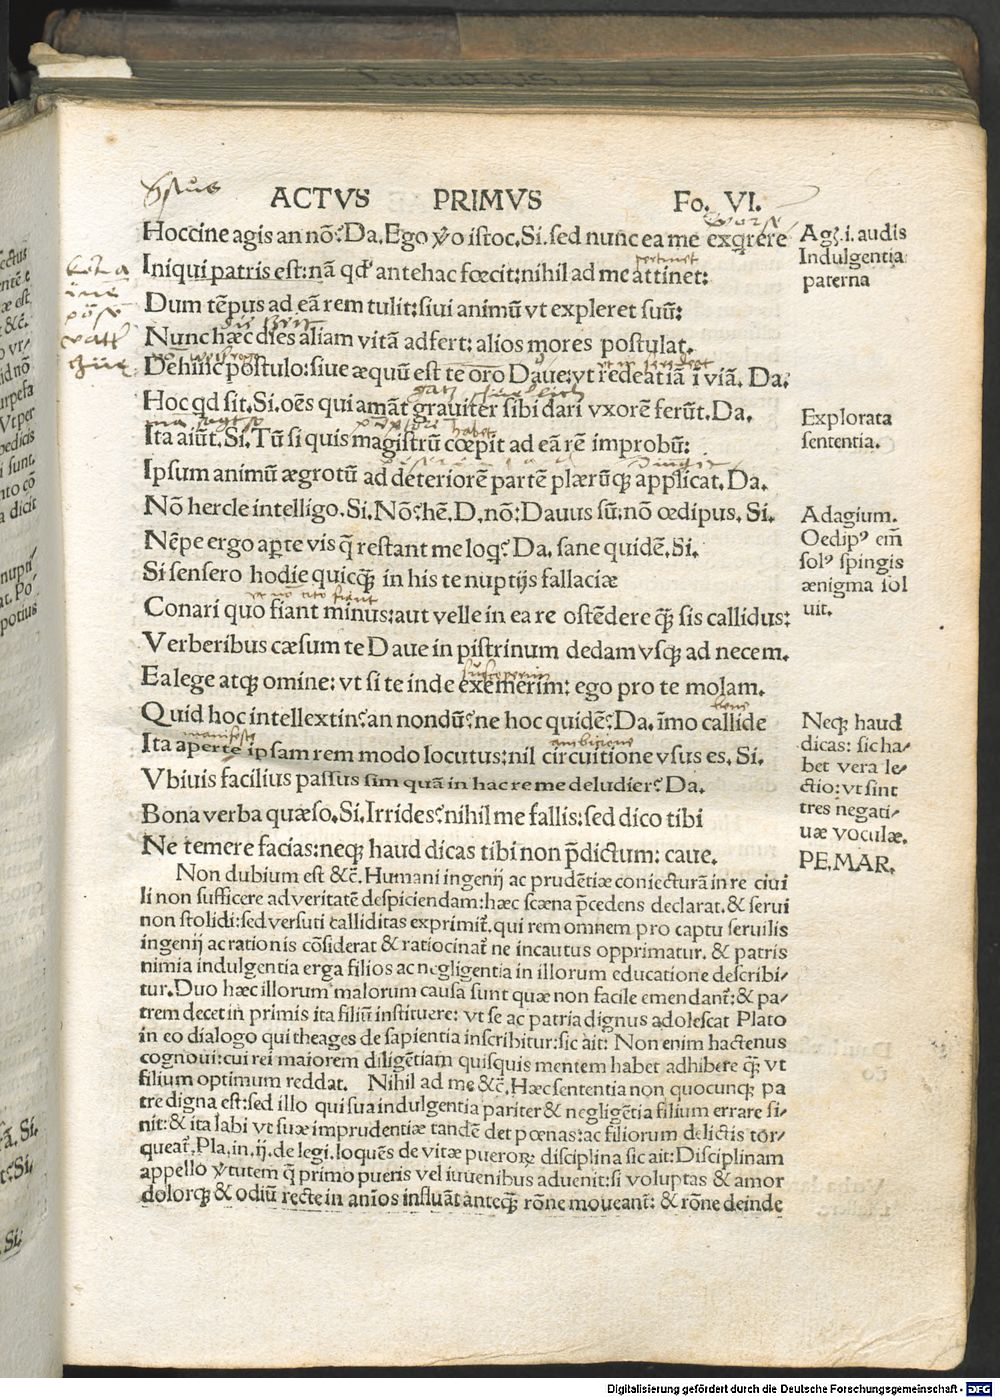 ACTVS PRIMVS Fo. VI.
Hoccine agis an nõ? Da. Ego ꝟo istoc. Si. sed nunc ea me exqrere
Iniqui patris est: nã qđ antehac fœcit: nihil ad me attinet:
Dum tẽpus ad eã rem tulit: siui animũ vt expleret suũ:
Nunc hæc dies aliam vitã adfert: alios mores postulat.
Dehinc postulo: siue æquũ est te oro Daue: vt redeat iã i viã. Da.
Hoc qd sit. Si. oẽs qui amãt grauiter sibi dari vxorẽ ferũt. Da.
Ita aiũt. Si. Tũ si quis magistrũ cœpit ad eã rẽ improbũ:
Ipsum animũ ægrotũ ad deteriorẽ partẽ plærũqꝫ applicat. Da.
Nõ hercle intelligo. Si. Nõ? hẽ. D. nõ: Dauus sũ: nõ œdipus. Si.
Nẽpe ergo aꝑte vis q̃ restant me loq? Da. sane quidẽ. Si.
Si sensero hodie quicq̃ꝫ in his te nuptijs fallaciæ
Conari quo fiant minus: aut velle in ea re ostẽdere q̃ꝫ sis callidus:
Verberibus cæsum te Daue in pistrinum dedam vsqꝫ ad necem.
Ea lege atqꝫ omine: vt si te inde exemerim: ego pro te molam.
Quid hoc intellextin? an nondũ? ne hoc quidẽ? Da. ĩmo callide
Ita aperte ipsam rem modo locutus: nil circuitione vsus es. Si.
Vbiuis facilius passus sim quã in hac re me deludier? Da.
Bona verba quæso. Si. Irrides? nihil me fallis: sed dico tibi
Ne temere facias: neqꝫ haud dicas tibi non p̃dictum: caue.
Non dubium est &c̃. Humani ingenij ac prudẽtiæ coniecturã in re ciui
li non sufficere ad veritatẽ despiciendam: hæc scæna p̃cedens declarat. & serui
non stolidi: sed versuti calliditas exprimit᷑. qui rem omnem pro captu seruilis
ingenij ac rationis cõsiderat & ratiocinat᷑ ne incautus opprimatur. & patris
nimia indulgentia erga filios ac negligentia in illorum educatione describi⸗
tur. Duo hæc illorum malorum causa sunt quæ non facile emendant᷑: & pa⸗
trem decet in primis ita filiũ instituere: vt se ac patria dignus adolescat Plato
in eo dialogo qui theages de sapientia inscribitur: sic ait: Non enim hactenus
cognoui: cui rei maiorem diligẽtiam quisquis mentem habet adhibere q̃ꝫ vt
filium optimum reddat. Nihil ad me &c̃. Hæc sententia non quocunqꝫ pa
tre digna est: sed illo qui sua indulgentia pariter & negligẽtia filium errare si⸗
nit: & ita labi vt suæ imprudentiæ tandẽ det pœnas: ac filiorum delictis tor⸗
queat᷑. Pla. in. ij. de legi. loquẽs de vitæ pueroꝝ disciplina sic ait: Disciplinam
appello ꝟtutem q̃ primo pueris vel iuuenibus aduenit: si voluptas & amor
dolorqꝫ & odiũ recte in anĩos influãt anteq̃ꝫ rõne moueant᷑: & rõne deinde
Agꝫ. i. audis
Indulgentia
paterna
Explorata
sententia.
Adagium.
Oedipꝰ em̃
solꝰ spingis
ænigma sol
uit.
Neqꝫ haud
dicas: sic ha⸗
bet vera le⸗
ctio: vt sint
tres negati⸗
uæ voculæ.
PE. MAR.
pertinet
manifeste
ambitione
Digitalisierung gefördert durch die Deutsche Forschungsgemeinschaft - DFG